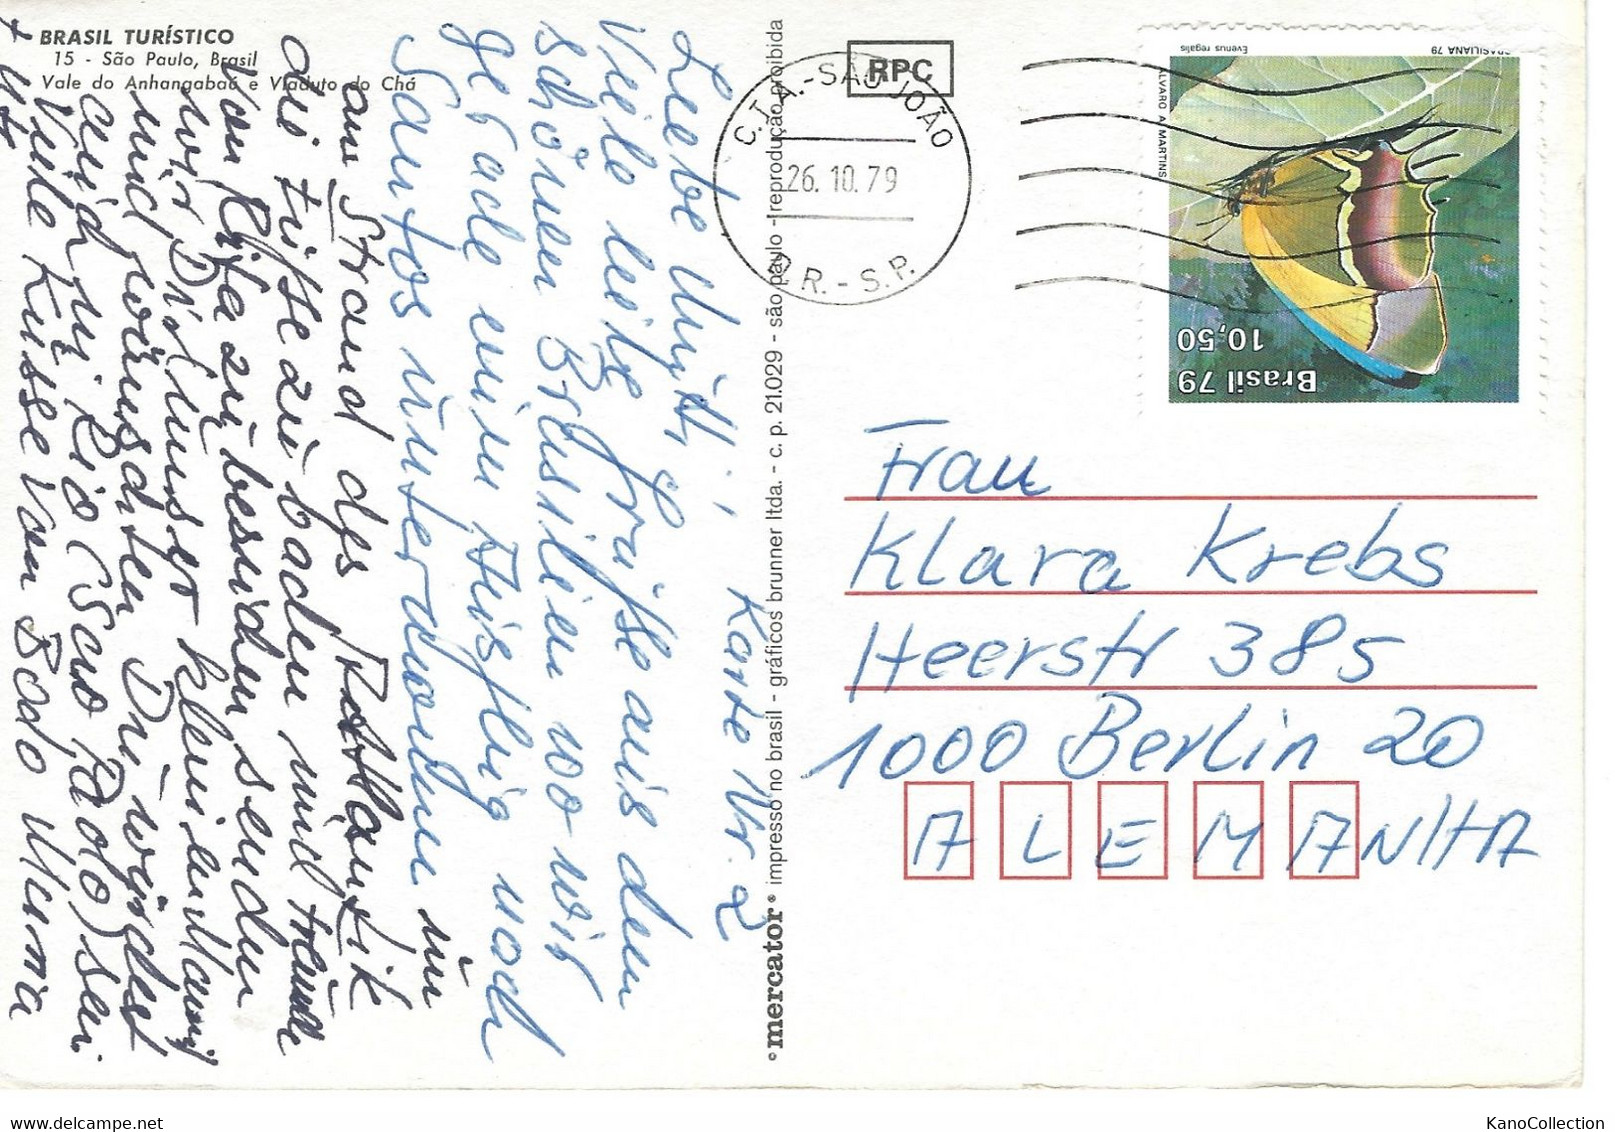 BRASIL TURÍSTICO
15 - São Paulo, Brasil
Vale do Anhangabaú e Viaduto do Chá
Karte Nr. 2
Liebe Mutti,
Viele liebe Grüße aus dem
schönen Brasilien wo wir
gerade einen Ausflug nach
Santos unternahmen um
am Strand des Atlantik
die Füße zu baden und
von Rita zu besuchen senden
wir Dir unser kleinen
und wünschten Du würdest
auch in Rio (Sao Paolo) sein
Viele Küsse von Bodo Mama
+
mercator impresso no brasil - gráficos brunner ltda. - c. p. 21.029 - são paulo - reprodução proibida
RPC
C.T.A.-SÃO JOÃO
26.10.79
D R. - S.P.
BRASILIANA 79
Evenus regalis
ALVARO A. MARTINS
Brasil 79
10,50
Frau
Klara Krebs
Heerstr 385
1000 Berlin 20
ALEMANHA
KanoCollection